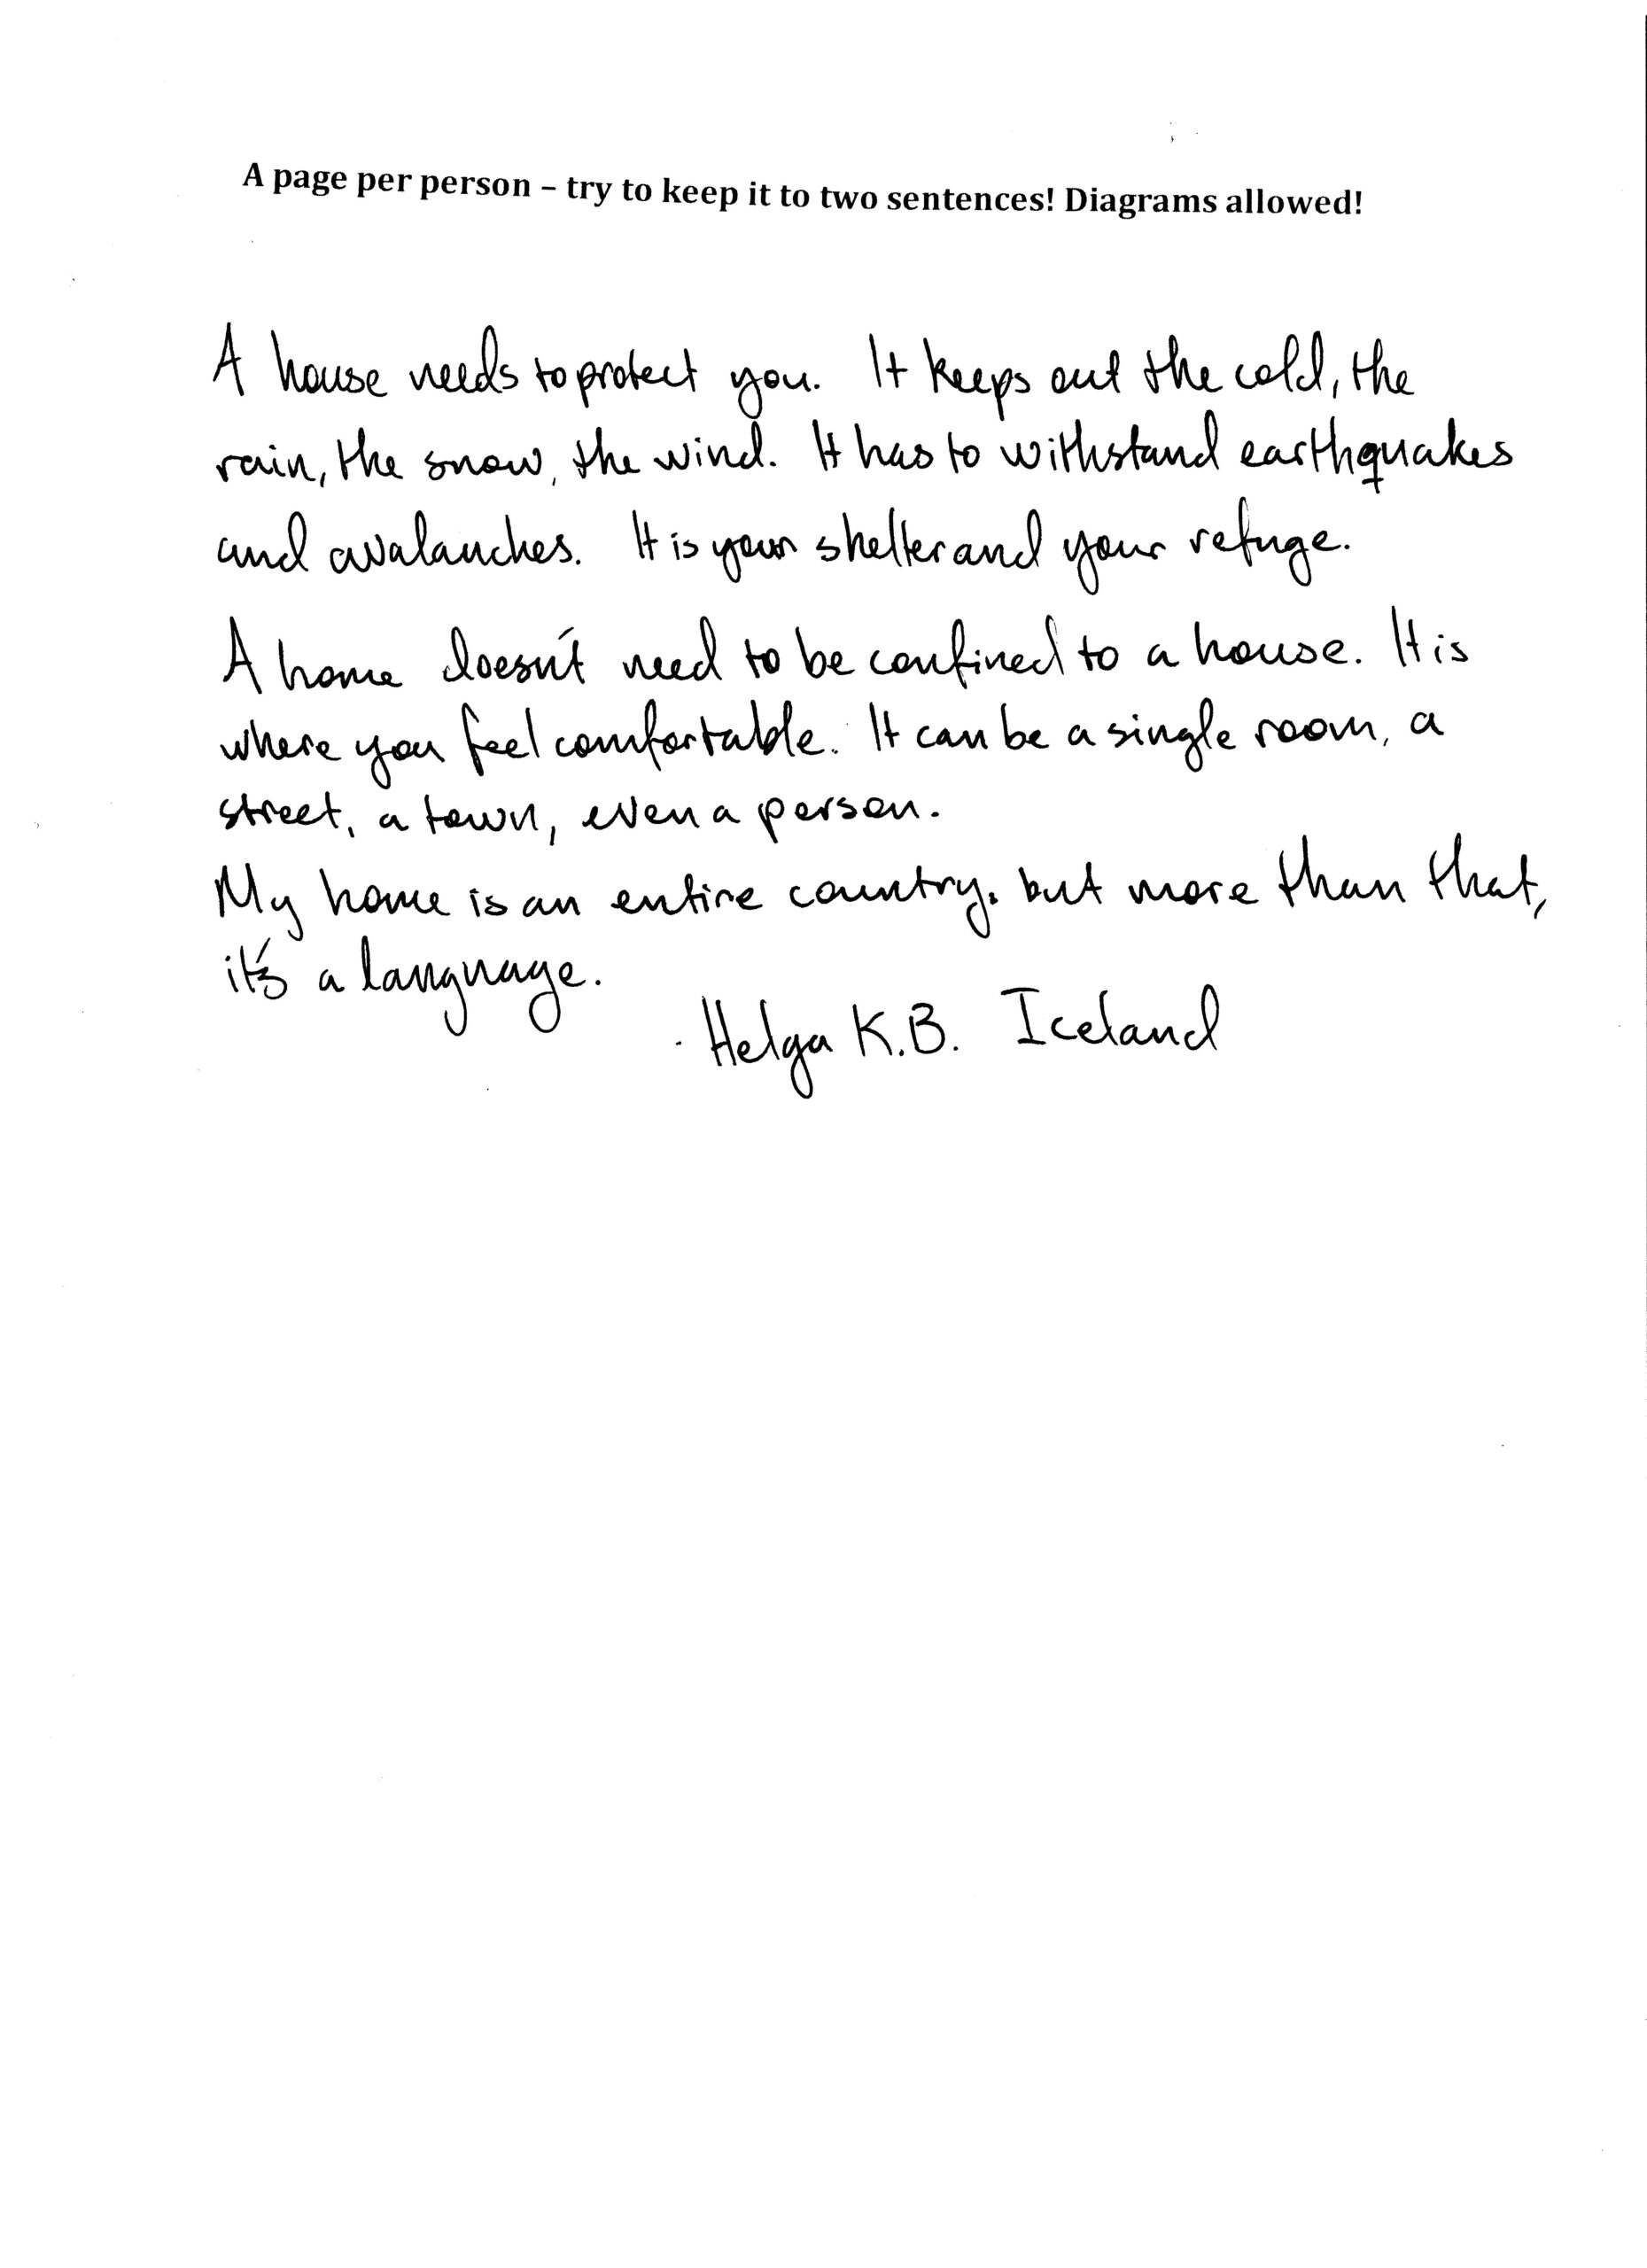 A page per person – try to keep it to two sentences! Diagrams allowed!
A house needs to protect you. It keeps out the cold, the
rain, the snow, the wind. It has to withstand earthquakes
and avalanches. It is your shelter and your refuge.
A home doesn't need to be confined to a house. It is
where you feel comfortable. It can be a single room, a
street, a town, even a person.
My home is an entire country, but more than that,
it's a language.
- Helga K.B. Iceland